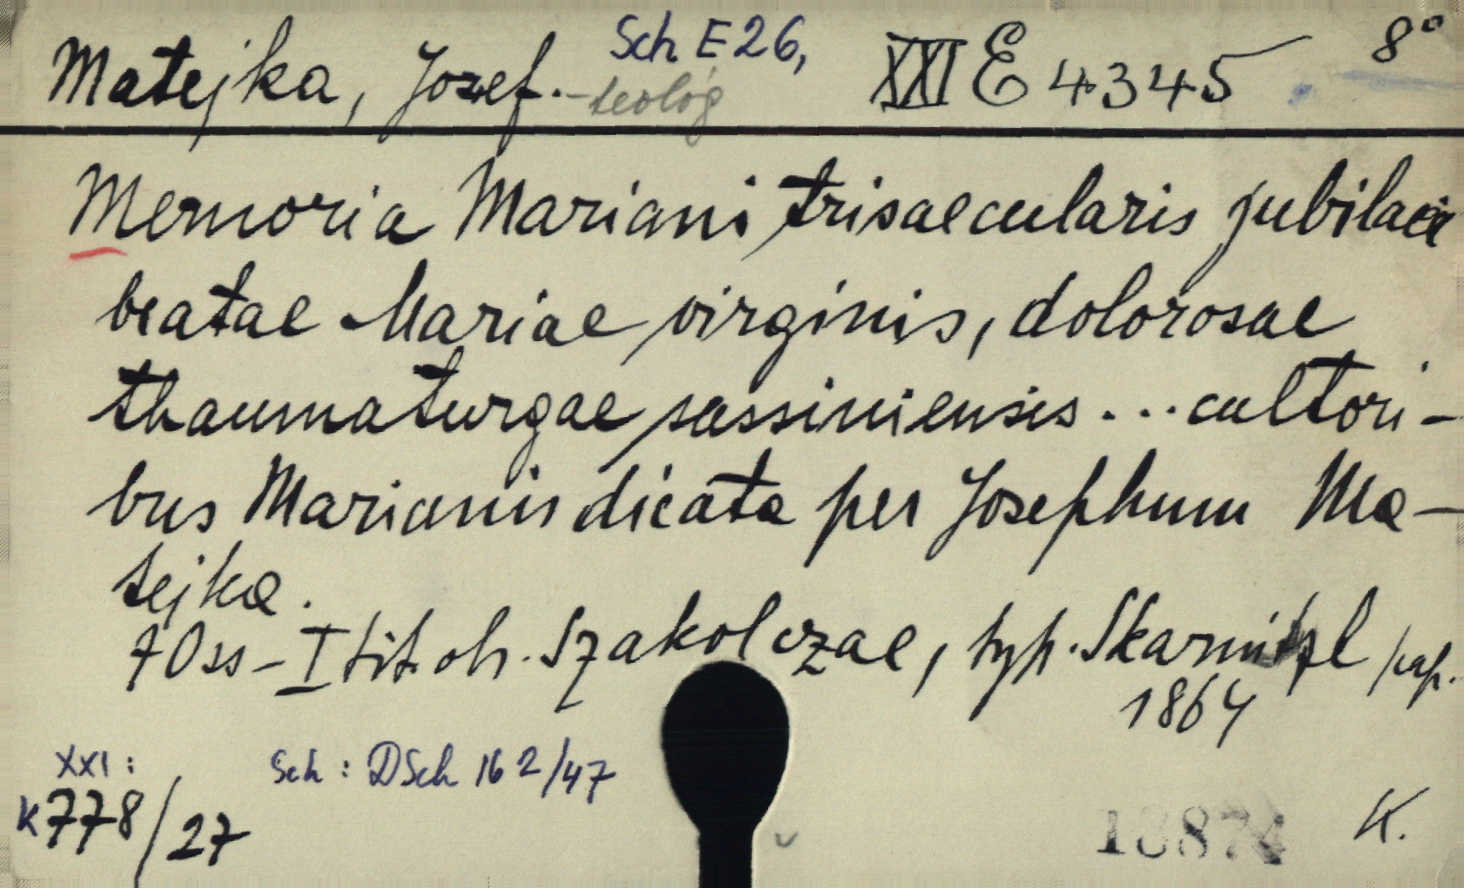 Sch E 26,
8°
Matejka, Jozef. - teológ XXI E 4345
Memoria Mariani trisaecularis jubilaei
beatae Mariae virginis, dolorosae
thaumaturgae sassiniensis ... cultori-
bus Marianis dicata per Josephum Ma-
tejka.
70ss-I tit. oh. Szakolczae, typ. Skarnitzl
1864
XXI: Sch: DSch 162/47
K778/27
13874 K.